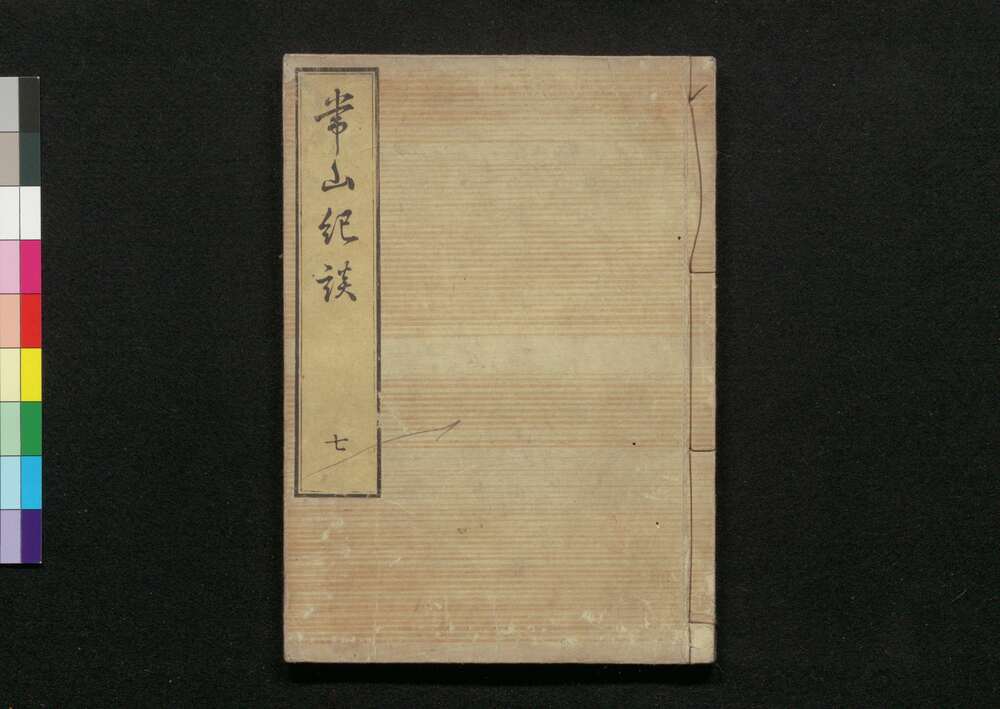 常山紀談
七